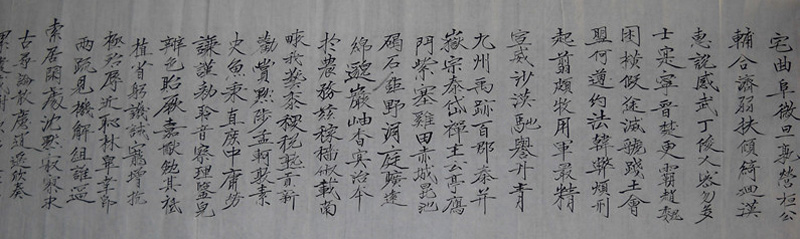 宅曲阜微旦孰營桓公
輔合濟弱扶傾綺迴漢
惠說感武丁俊乂密勿多
士寔寧晉楚更霸趙魏
困橫假途滅虢踐土會
盟何遵約法韓弊煩刑
起翦頗牧用軍最精
宣威沙漠馳譽丹青
九州禹跡百郡秦并
嶽宗泰岱禪主云亭鴈
門紫塞雞田赤城昆池
碣石鉅野洞庭曠遠
綿邈巖岫杳冥治本
於農務茲稼穡俶載南
畝我藝黍稷稅熟貢新
勸賞黜陟孟軻敦素
史魚秉直庶中庸勞
謙謹勑聆音察理鑒皃
辨色貽厥嘉猷勉其祗
植省躬譏誡寵增抗
極殆辱近耻林皋幸即
兩疏見機解組誰逼
索居閑處沈默寂寥求
古尋論散慮逍遙欣奏
累遣慼謝